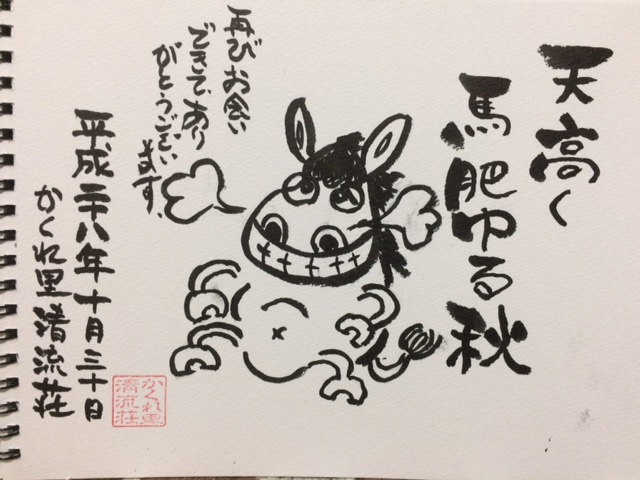 天高く
馬肥ゆる秋
再びお会い
できてあり
がとうござい
ます。
平成二十八年十月三十日
かくれ里清流荘
かくれ里
清流荘